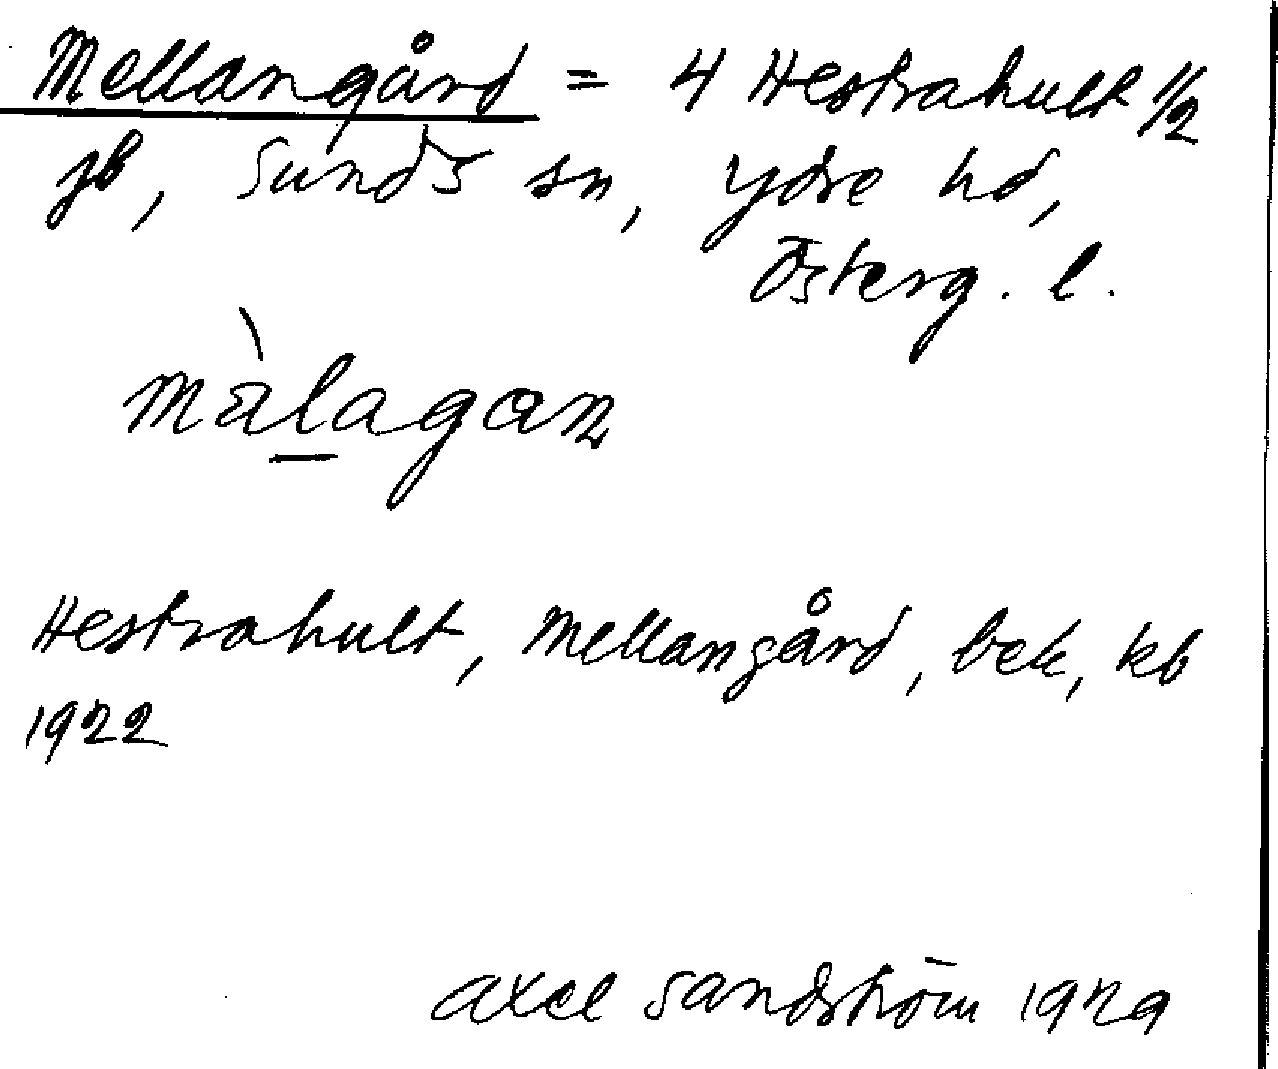 Mellangård = 4 Hestrahult 1/2
jb, Sunds sn, Ydre hd,
Österg. l.
màlagan
Hestrahult, Mellangård, bek, kb
1922
Axel Sandström 1929